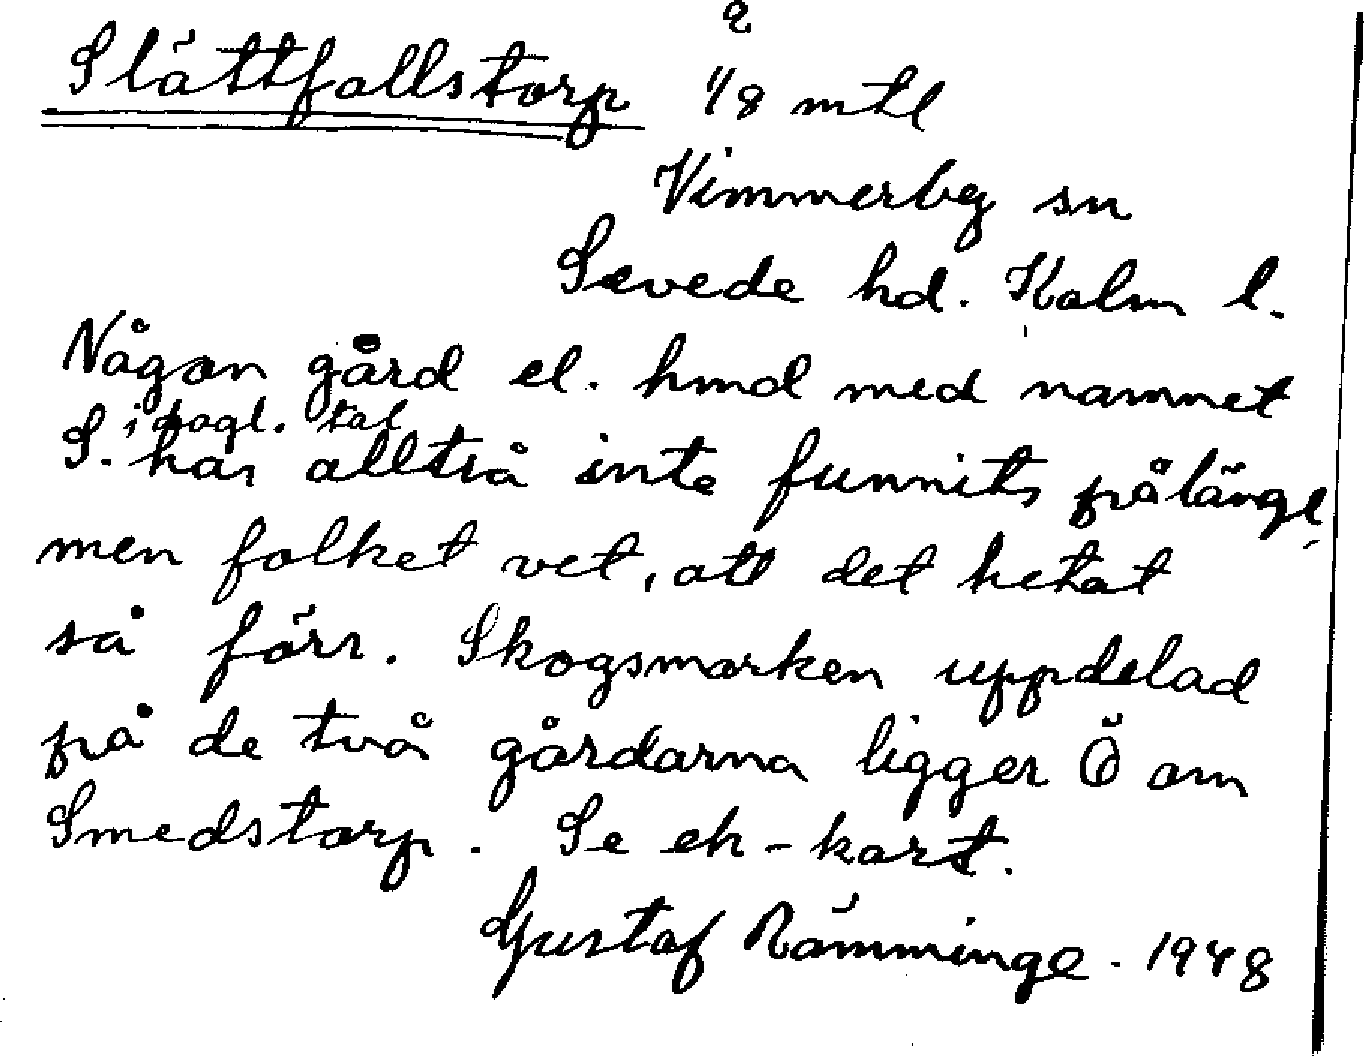 2
Slättfallstorp 1/8 mtl
Vimmerby sn
Sevede hd. Kalm l.
Någon gård el. hmd med namnet
i dagl. tal
S. har alltså inte funnits på länge
men folket vet, att det hetat
så förr. Skogsmarken uppdelad
på de två gårdarna ligger Ö om
Smedstorp. Se ek-kart.
Gustaf Rämminge. 1948